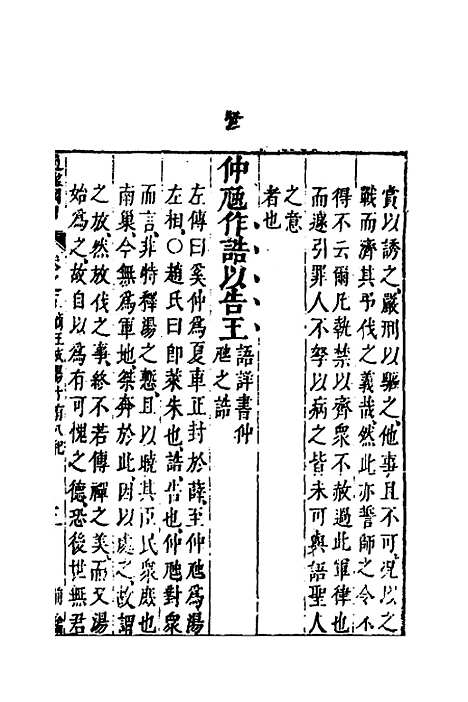 賞以誘之嚴刑以驅之他事且不可况以之
戰而濟其弔伐之義哉然此亦誓師之令不
得不云爾凡執禁以齊衆不赦過此軍律也
而遽引罪人不孥以病之皆未可與語聖人
之意
者也
仲虺作誥以告王 誥詳書仲虺之誥
左傳曰奚仲爲夏車正封於薛至仲虺爲湯
左相○趙氏曰即萊朱也誥告也仲虺對衆
而言非特釋湯之慙且以曉其臣民衆庶也
南巢今無爲軍地桀奔於此因以處之故謂
之放然放伐之事終不若傳禪之美而又湯
始爲之故自以爲有可愧之德恐後世無君